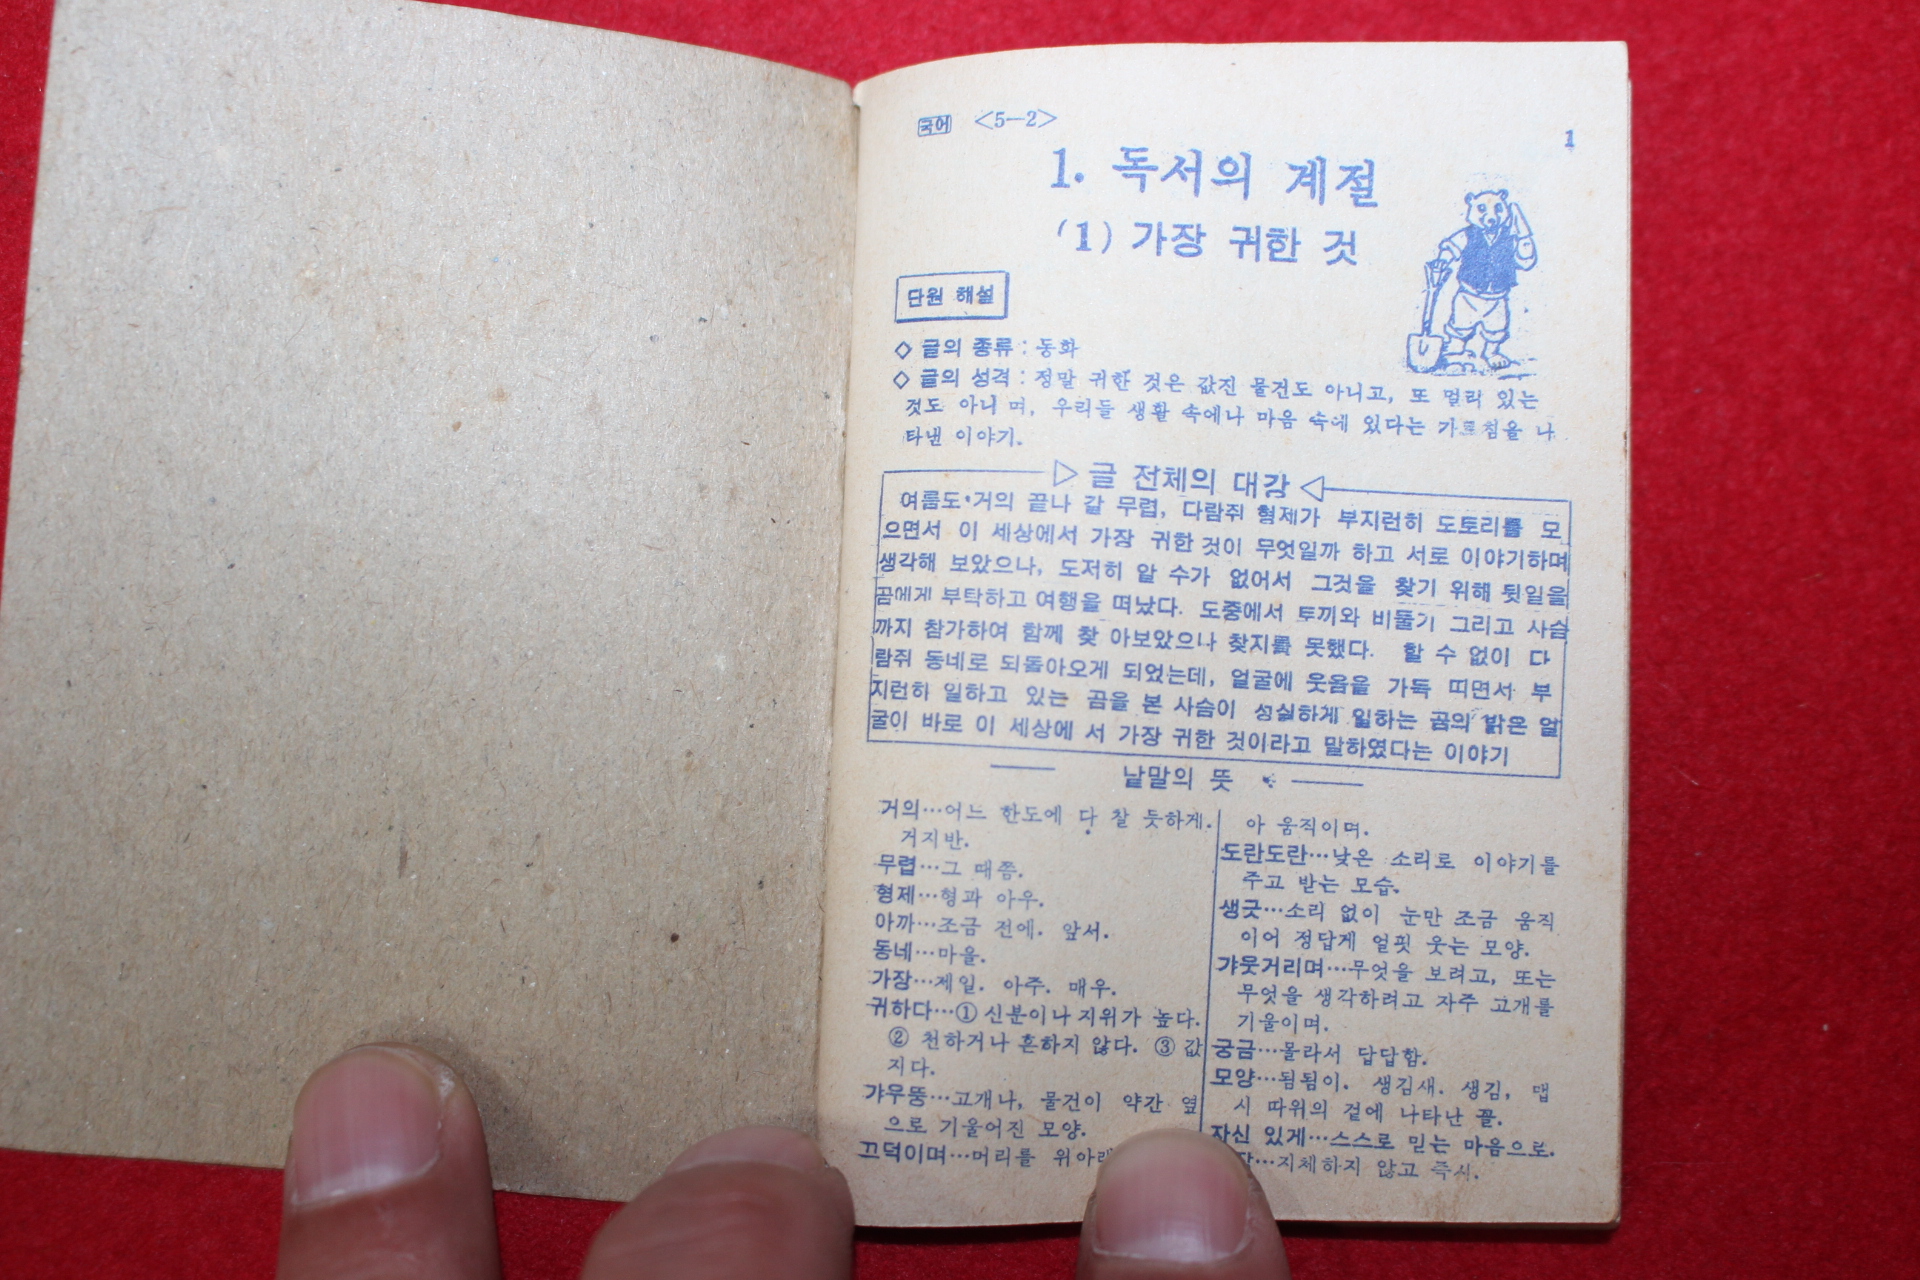 국어 <5-2>
1
1. 독서의 계절
(1) 가장 귀한 것
단원 해설
◇ 글의 종류 : 동화
◇ 글의 성격 : 정말 귀한 것은 값진 물건도 아니고, 또 멀리 있는
것도 아니 며, 우리들 생활 속에나 마음 속에 있다는 가르침을 나
타낸 이야기.
▷ 글 전체의 대강 ◁
여름도·거의 끝나 갈 무렵, 다람쥐 형제가 부지런히 도토리를 모
으면서 이 세상에서 가장 귀한 것이 무엇일까 하고 서로 이야기하며
생각해 보았으나, 도저히 알 수가 없어서 그것을 찾기 위해 뒷일을
곰에게 부탁하고 여행을 떠났다. 도중에서 토끼와 비둘기 그리고 사슴
까지 참가하여 함께 찾 아보았으나 찾지를 못했다. 할 수 없이 다
람쥐 동네로 되돌아오게 되었는데, 얼굴에 웃음을 가득 띠면서 부
지런히 일하고 있는 곰을 본 사슴이 성실하게 일하는 곰의 밝은 얼
굴이 바로 이 세상에 서 가장 귀한 것이라고 말하였다는 이야기
낱말의 뜻
거의…어느 한도에 다 찰 듯하게.
거지반.
무렵…그 때쯤.
형제…형과 아우.
아까…조금 전에. 앞서.
동네…마을.
가장…제일. 아주. 매우.
귀하다…① 신분이나 지위가 높다.
② 천하거나 흔하지 않다. ③ 값
지다.
갸우뚱…고개나, 물건이 약간 옆
으로 기울어진 모양.
끄덕이며…머리를 위아래
아 움직이며.
도란도란…낮은 소리로 이야기를
주고 받는 모습.
생긋…소리 없이 눈만 조금 움직
이어 정답게 얼핏 웃는 모양.
갸웃거리며…무엇을 보려고, 또는
무엇을 생각하려고 자주 고개를
기울이며.
궁금…몰라서 답답함.
모양…됨됨이. 생김새. 생김, 맵
시 따위의 겉에 나타난 꼴.
자신 있게…스스로 믿는 마음으로.
…지체하지 않고 즉시.